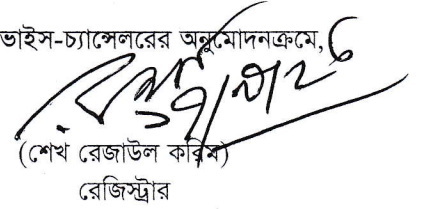 ভাইস-চ্যান্সেলরের অনুমোদনক্রমে,
(শেখ রেজাউল করিম)
রেজিস্ট্রার